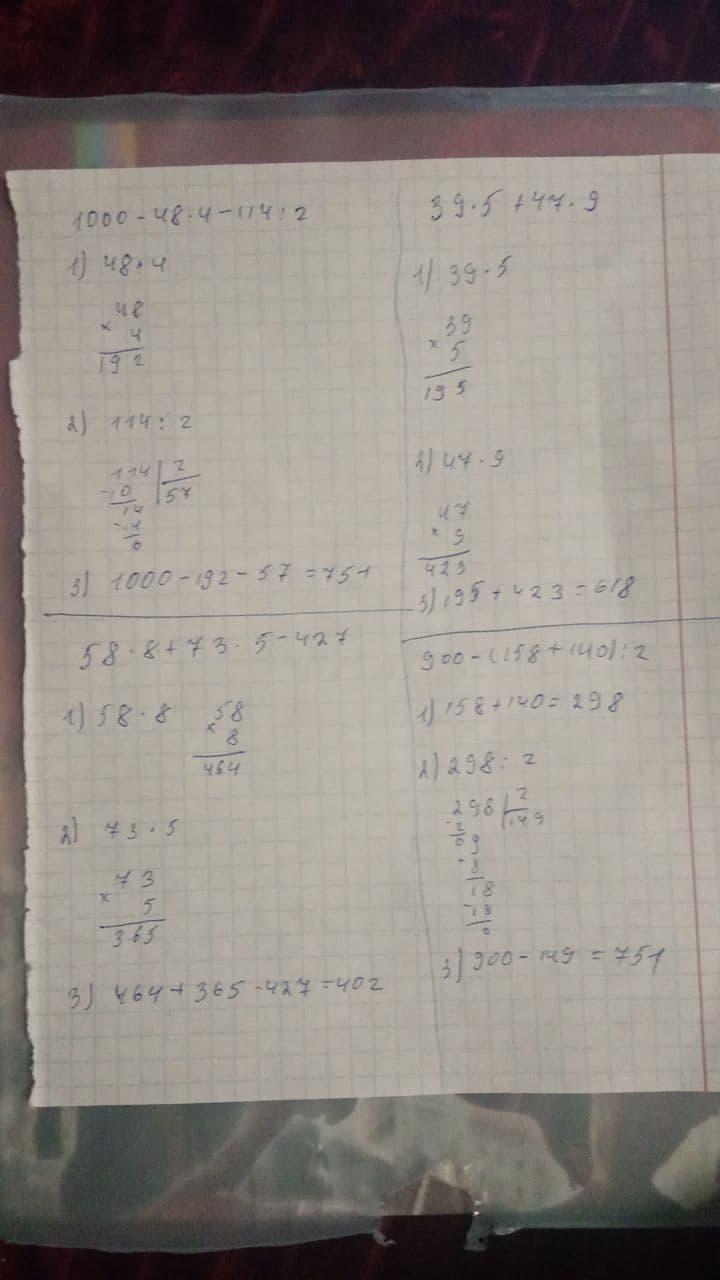 1000-48·4-114:2
1) 48·4
48
× 4
192
2) 114:2
114 | 2
-10 57
14
-14
0
3) 1000-192-57=751
39·5+47·9
1) 39·5
39
× 5
195
2) 47·9
47
× 9
423
3) 195+423=618
58·8+73·5-427
1) 58·8
58
× 8
464
2) 73·5
73
× 5
365
3) 464+365-427=402
900-(158+140):2
1) 158+140=298
2) 298:2
298 | 2
-2 149
09
-8
18
-18
0
3) 900-149=751